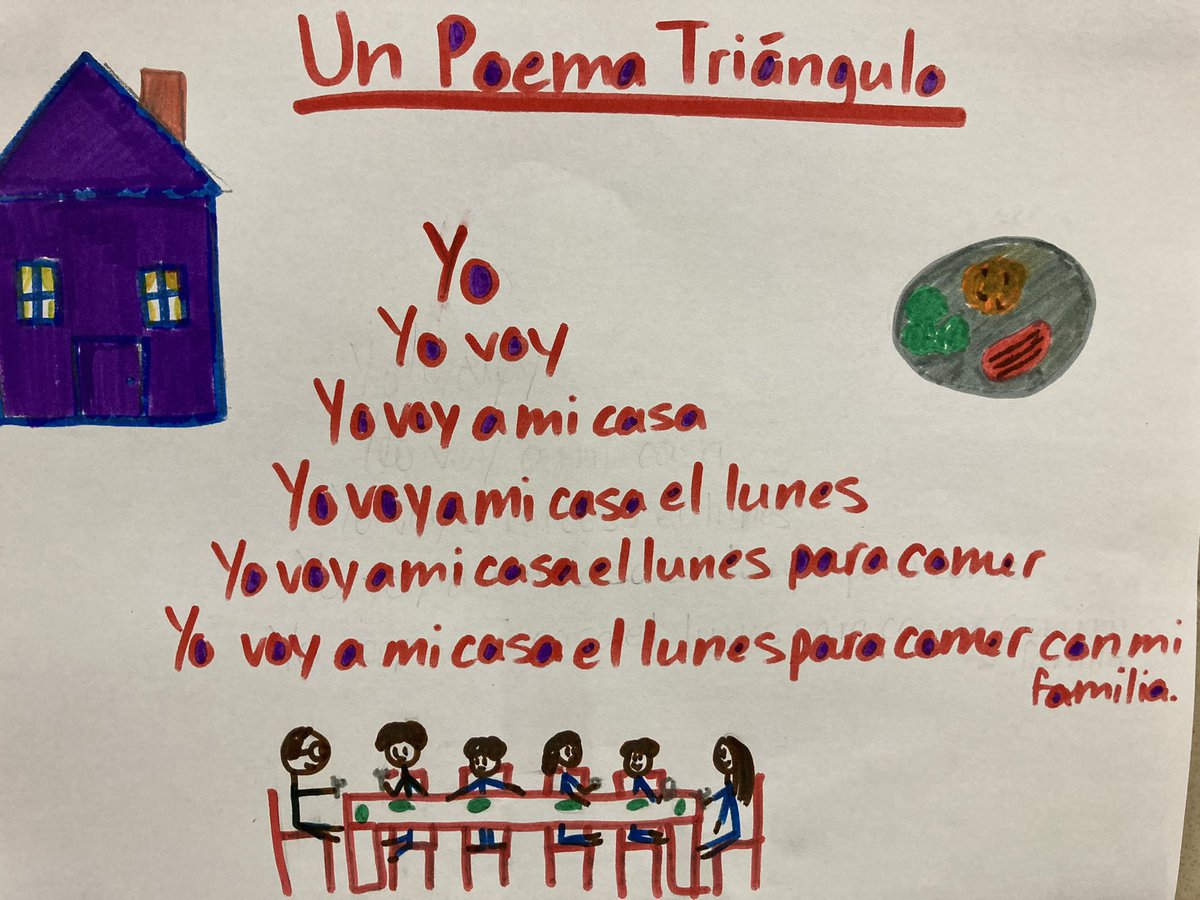 Un Poema Triángulo
Yo
Yo voy
Yo voy a mi casa
Yo voy a mi casa el lunes
Yo voy a mi casa el lunes para comer
Yo voy a mi casa el lunes para comer con mi
familia.